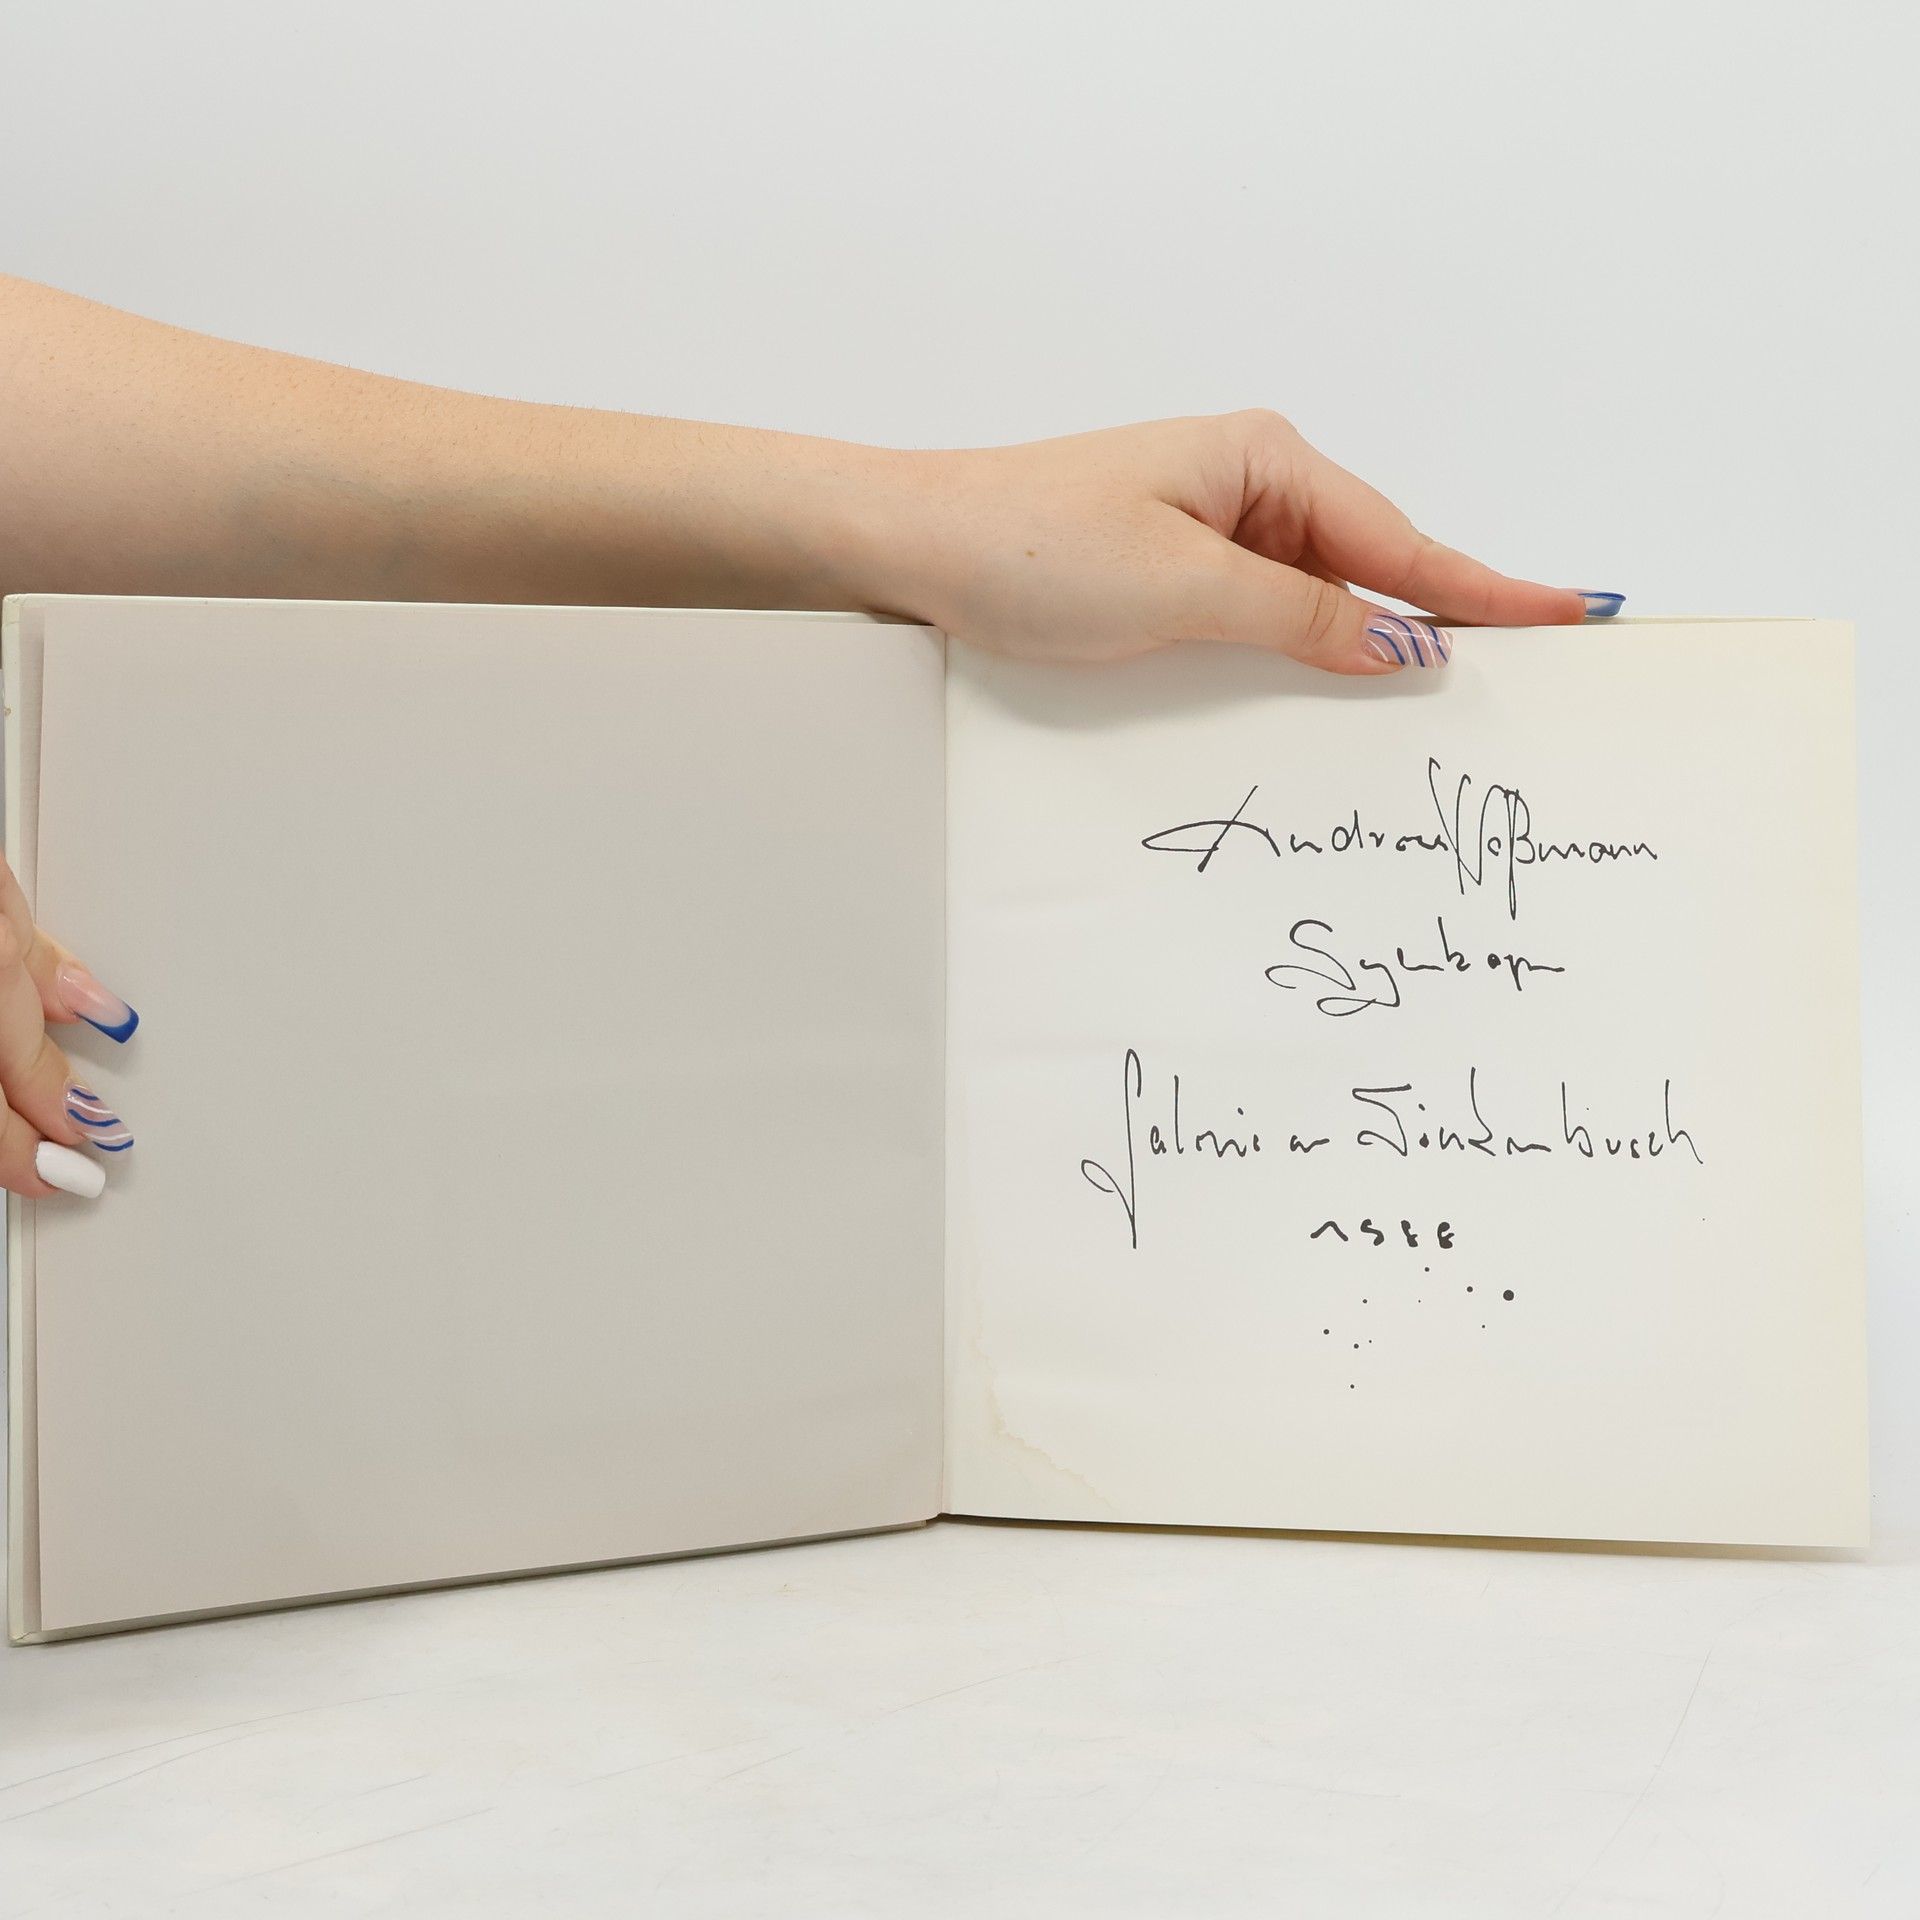 Andreas Woßmann
Synkopen
Galerie am Finkenbusch
1988